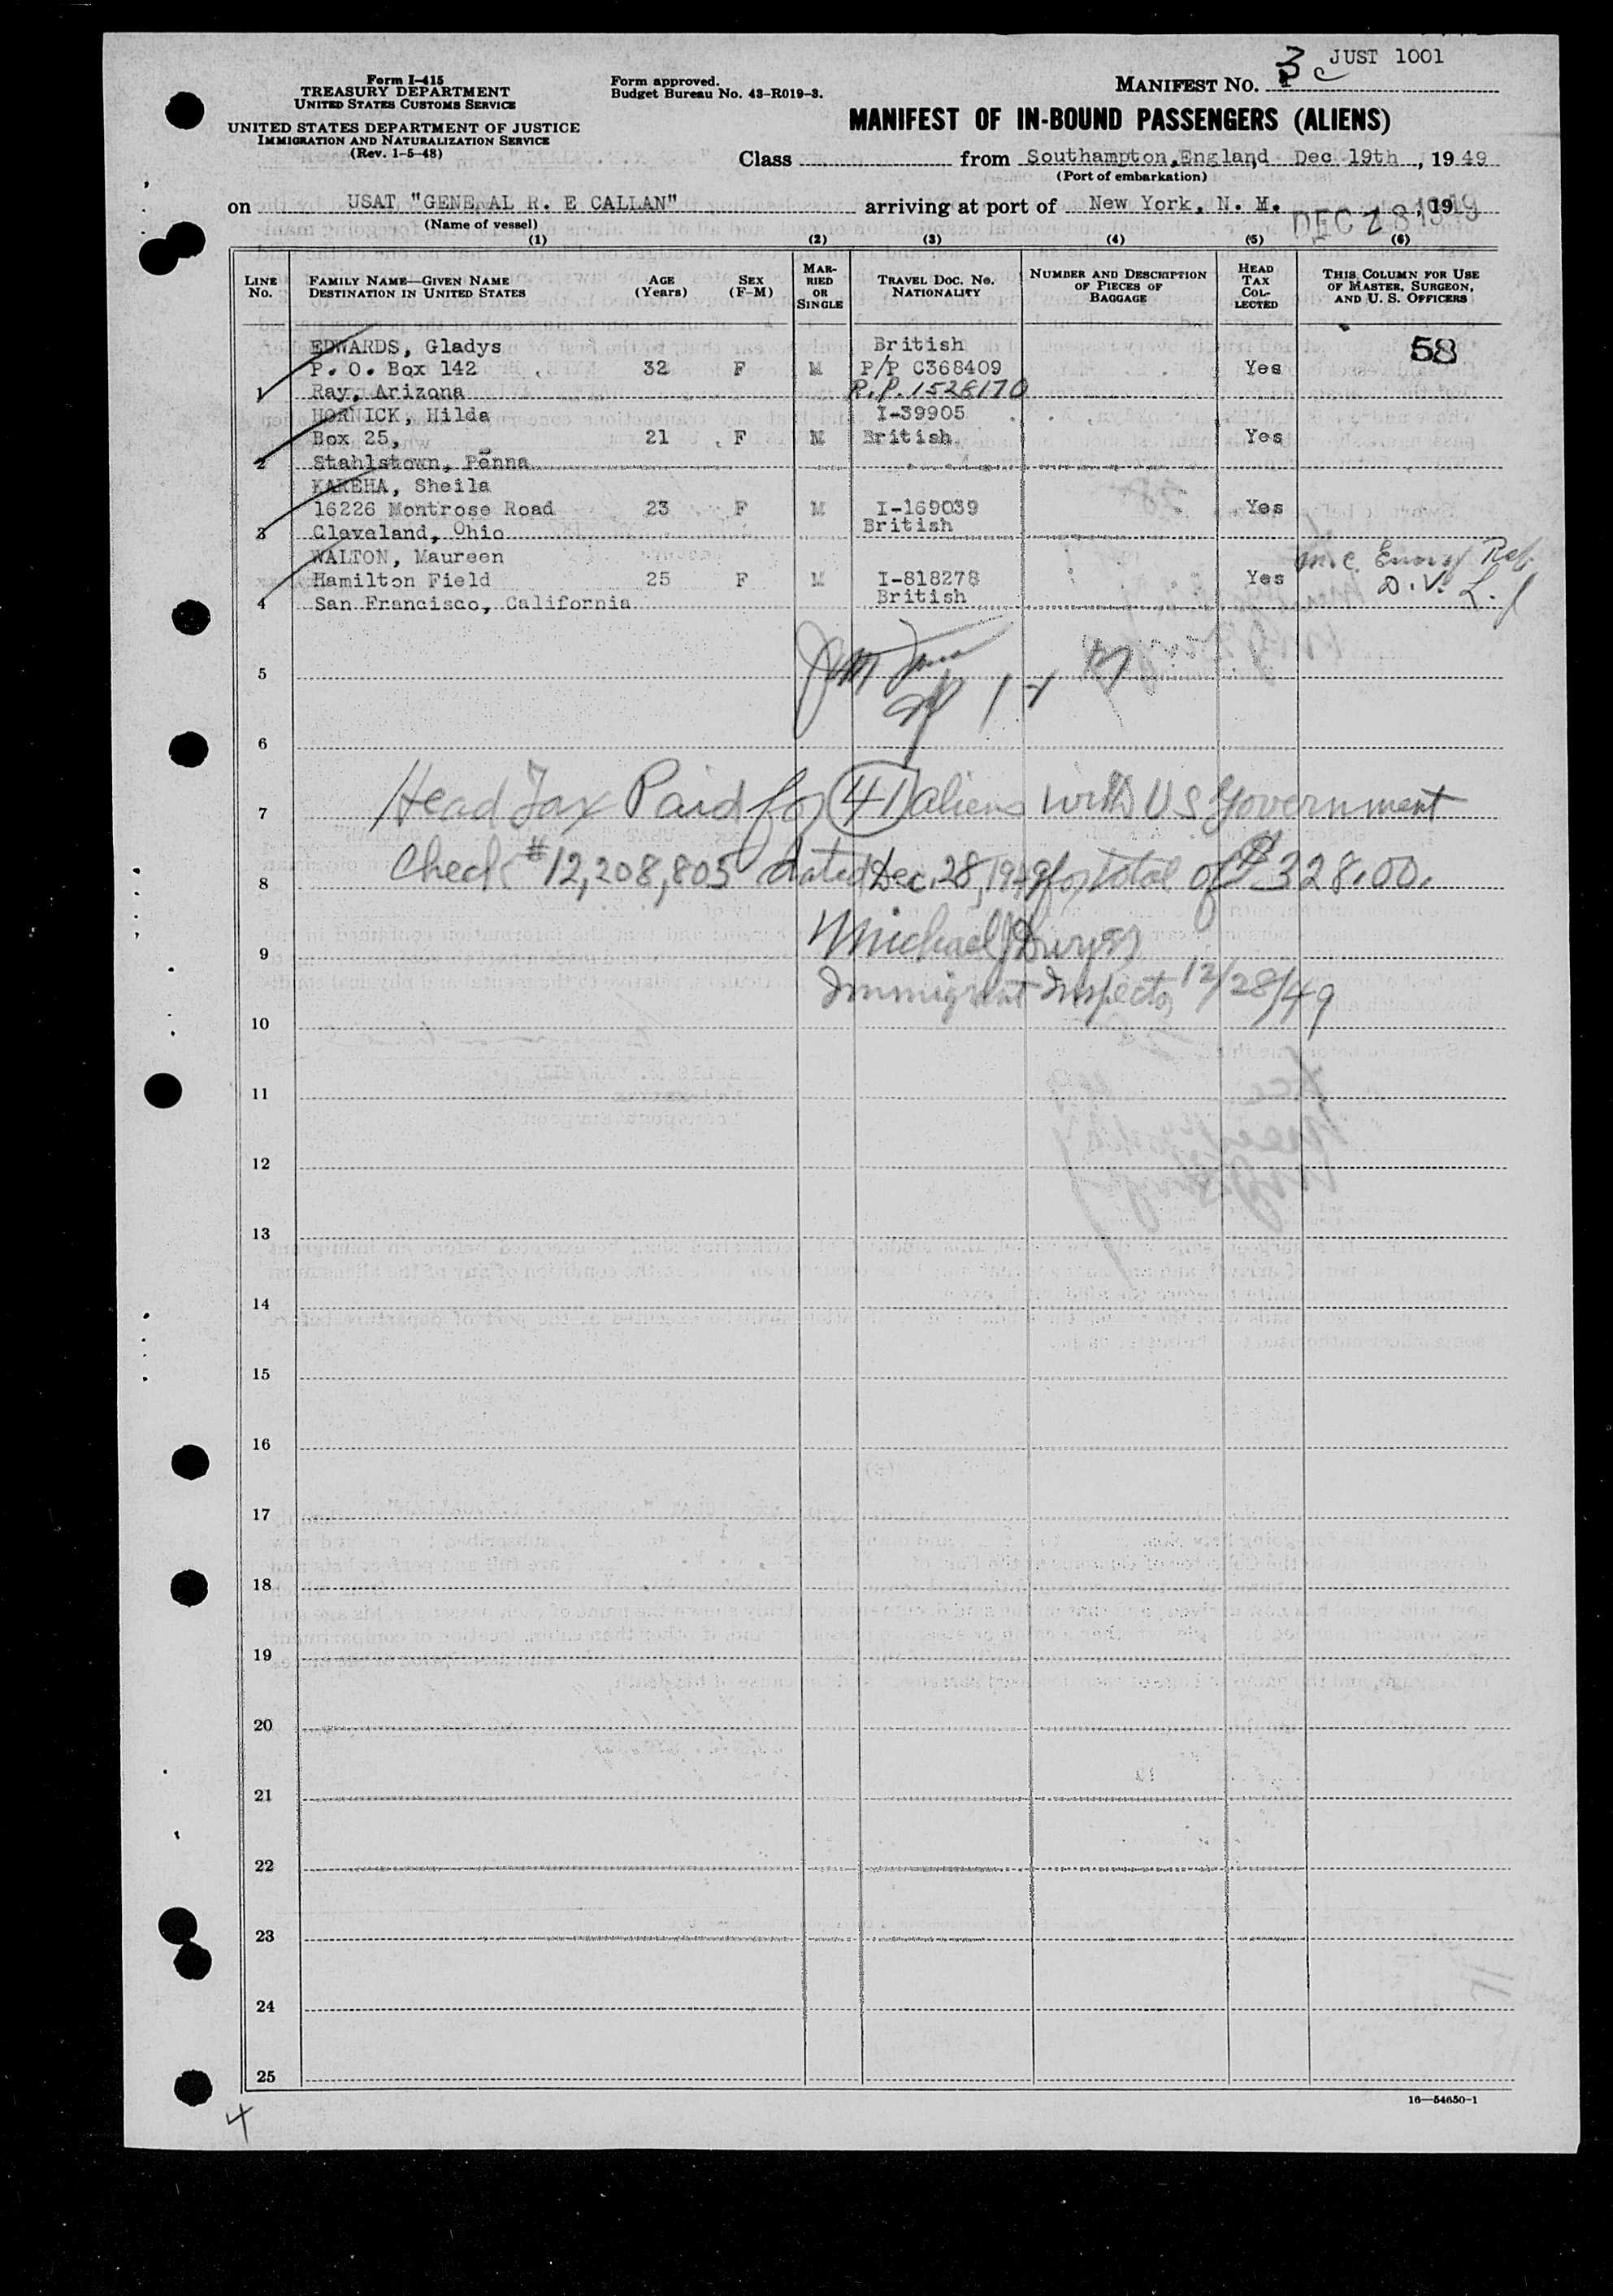 JUST 1001
Form I-415
TREASURY DEPARTMENT
UNITED STATES CUSTOMS SERVICE
UNITED STATES DEPARTMENT OF JUSTICE
IMMIGRATION AND NATURALIZATION SERVICE
(Rev. 1-5-48)
Form approved.
Budget Bureau No. 43-R019-3.
MANIFEST NO. 3
MANIFEST OF IN-BOUND PASSENGERS (ALIENS)
Class from Southampton, England, Dec 19th, 1949
(Port of embarkation)
on USAT "GENERAL R. E CALLAN" arriving at port of New York, N. M. DEC 28 1949, 19
(Name of vessel)
(1) (2) (3) (4) (5) (6)
LINE No. FAMILY NAME—GIVEN NAME DESTINATION IN UNITED STATES AGE (Years) SEX (F-M) MARRIED OR SINGLE TRAVEL DOC. NO. NATIONALITY NUMBER AND DESCRIPTION OF PIECES OF BAGGAGE HEAD TAX COLLECTED THIS COLUMN FOR USE OF MASTER, SURGEON, AND U. S. OFFICERS
58
EDWARDS, Gladys British
P. O. Box 142 32 F M P/P C368409 Yes
1 Ray, Arizona R.P. 1528170
HORNICK, Hilda I-39905
Box 25, 21 F M British Yes
2 Stahlstown, Penna
KAREHA, Sheila
16226 Montrose Road 23 F M I-169039 Yes
3 Cleveland, Ohio British
WALTON, Maureen
Hamilton Field 25 F M I-818278 Yes
4 San Francisco, California British
5
6
7 Head Tax Paid for 41 aliens with US Government
8 Check #12,208,805 dated Dec. 28, 1949 for total of $328.00.
9 Michael
Immigrant Inspector 12/28/49
10
11
12
13
14
15
16
17
18
19
20
21
22
23
24
25
16—54650-1
4